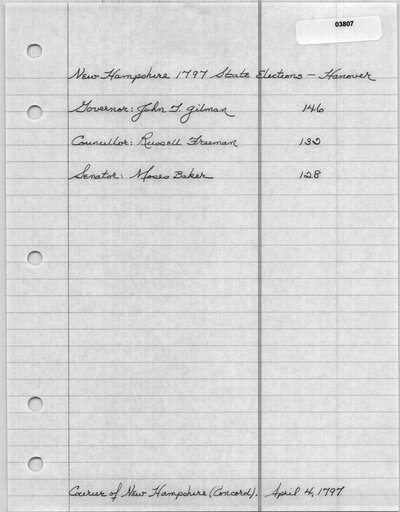 03807
New Hampshire 1797 State Elections - Hanover
Governor: John T. Gilman 146
Councillor: Russell Freeman 132
Senator: Moses Baker 128
Courier of New Hampshire (Concord). April 4, 1797